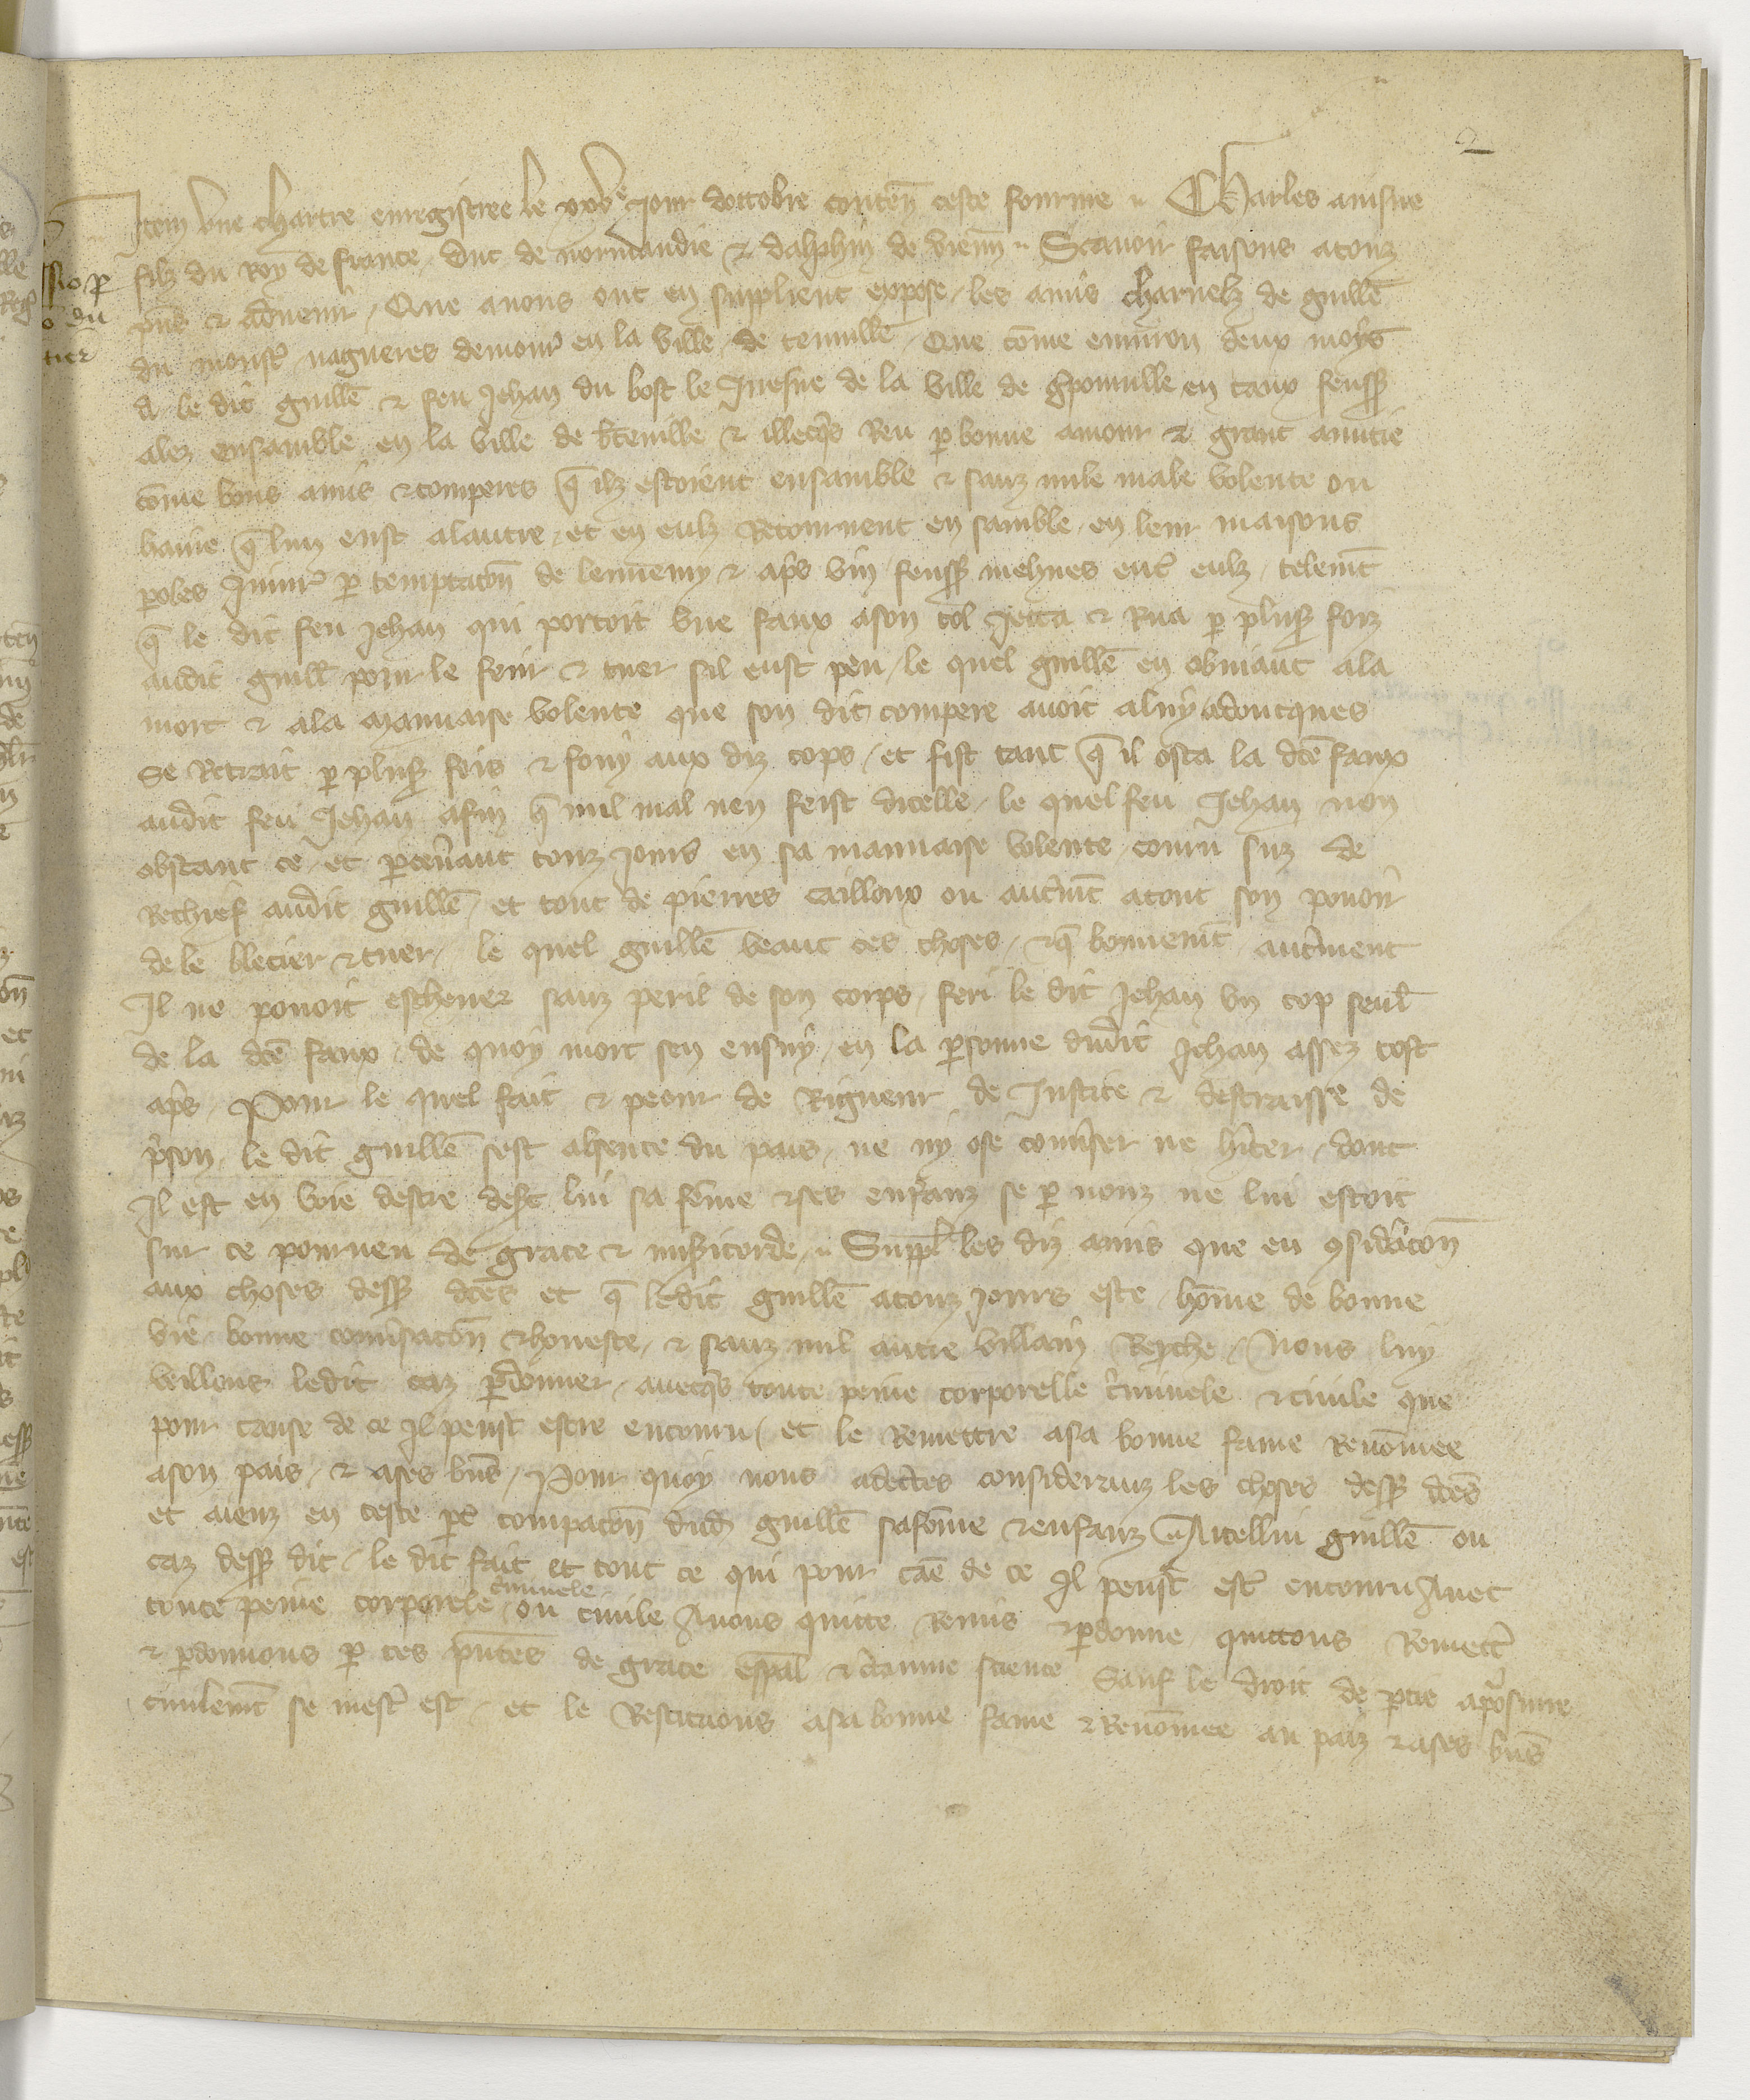 2
Item une chartre enregistree le xxve jour doctobre conten̄ ceste fourme Charles ainsne
filz du Roy de france duc de normandie & dalphin de vienn̄ Scavoir faisons a touz
p̄ns & advenir Que a nous ont en suppliant expose les amis charnelz de guillē
du nagueres demour en la ville de Que cōme environ deux moys
a le dit guillē & feu Jehan du bosc le Juesne de la ville de en caux feuss
alez ensamble en la ville de & illecq̄s Beu p bonne amour & grant amitie
cōme bons amis & comperes q̄ ilz estoient ensamble & sanz nule male volente ou
haine q̄ lun eust a lautre et en eulz Retournent en samble en leur maisons
paroles p temptacōn de lennemy & ap̄s vin feuss mehues ent̄ eulz telemt̄
q̄ le dit feu Jehan qui portoit une faux a son col Jecta & Rua p plus foiz
audit guill pour le ferir & tuer sil eust peu le quel guillē en obviant a la
mort & a la mauvaise volente que son dit compere avoit a luy adoncques
se Retrait p plus fois & fouy aux diz cops et fist tant q̄ il osta la dcē faux
audit feu Jehan afin q̄ nul mal nen feist dicelle le quel feu Jehan non
obstant ce et touz jours en sa mauvaise volente couru suz de
Rechief audit guillē et tout de pierres cailloux ou aut̄mt̄ a tout son povoir
de le blecier & tuer le quel guillē veant ces choses & q̄ bonnemt̄ aut̄ment
Il ne povoit eschever sanz peril de son corps feri le dit Jehan un cop seul
de la dcē faux de quoy mort sen ensuy en la psonne dudit Jehan assez tost
ap̄s Pour le quel fait & peour de Rigueur de Justice & destraisse de
p̄son le dit guillē sest absente du pais ne ny ose conv̄ser ne h̄iter dont
Il est en voie destre desc lui sa fēme & ses enfanz se p nouz ne lui estoit
sur ce pourveu de grace & mis̄icorde Suppl les diz amis que en 9sid̄acōn
aux choses dess dcēs et q̄ ledit guillē a touz jours este hōme de bonne
vie bonne conv̄sacōn & honeste & sanz nul autre villain Rep̄che Nous luy
veillons ledit caz p̄donner avecq̄s toute peine corporelle c̄iminele & civile que
pour cause de ce Il peust estre encouru et le Remettre a sa bonne fame Renōmee
a son pais & a ses bn̄s Pour quoy nous adec̄tes consideranz les choses dess dcēs
et aienz en ceste pt̄ compacōn dud guillē sa fēme & enfanz A icellui guillē ou
caz dess dit le dit fait et tout ce qui pour cāe de ce Il peust est̄ encouru Avec
toute peine corporele criminele ou civile Avons quitte Remis & p̄donne quittons Remett̄
& p̄donnons p ces p̄ntes de grace esp̄al & c̄taine science Sauf le droit de ptie a poursuire
civilemt̄ se mest̄ est et le Restituons a sa bonne fame & Renōmee au paiz & a ses bn̄s